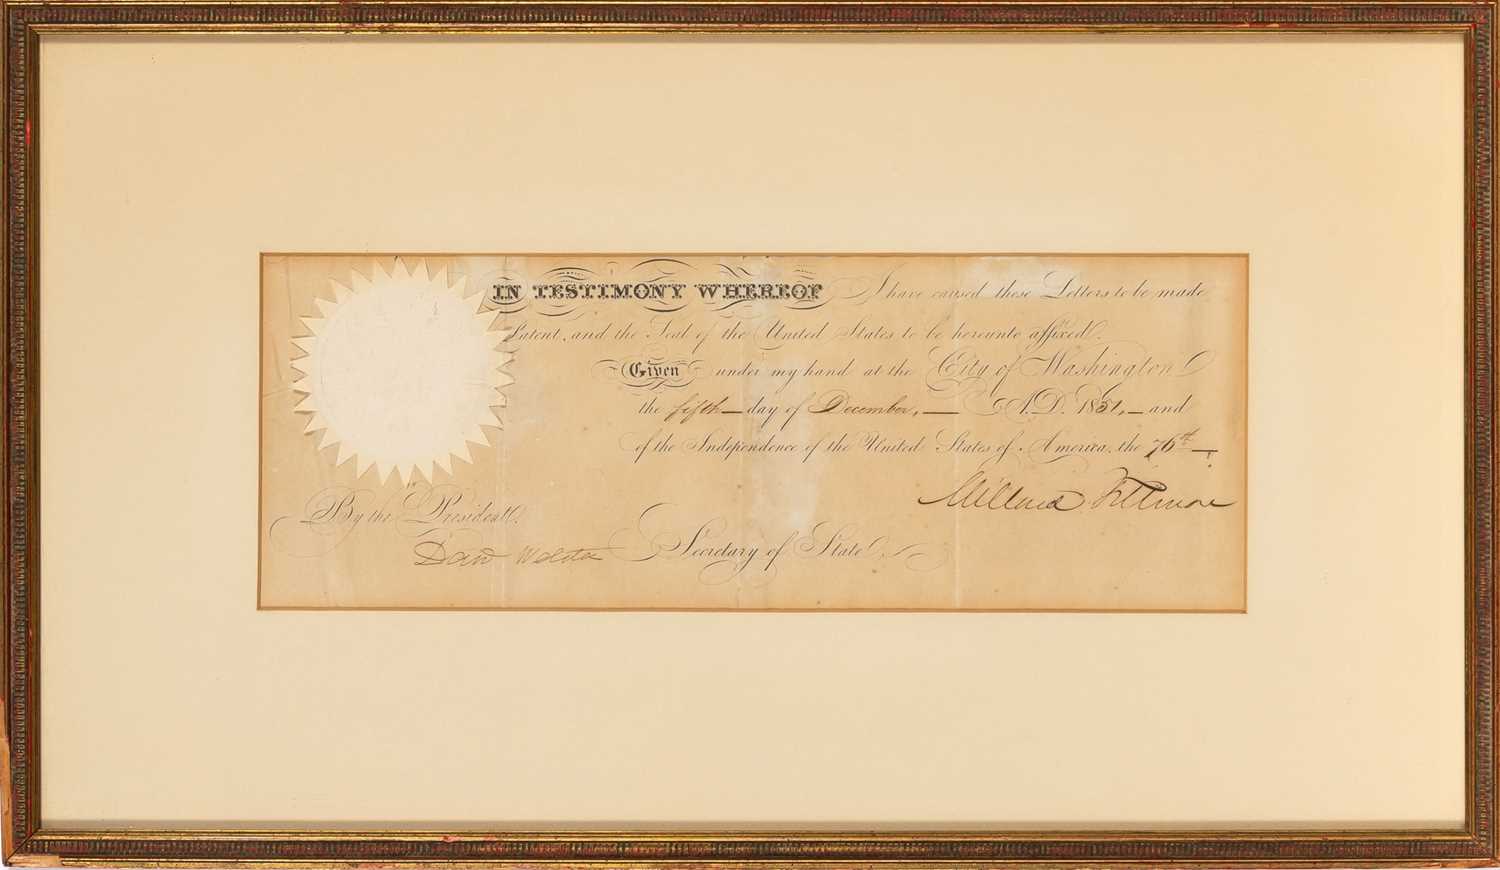 IN TESTIMONY WHEREOF I have caused these Letters to be made
Patent, and the Seal of the United States to be hereunto affixed.
Given under my hand at the City of Washington
the fifth – day of December, – A.D. 1851, – and
of the Independence of the United States of America, the 76th –
Millard Fillmore
By the President.
Danl Webster Secretary of State.